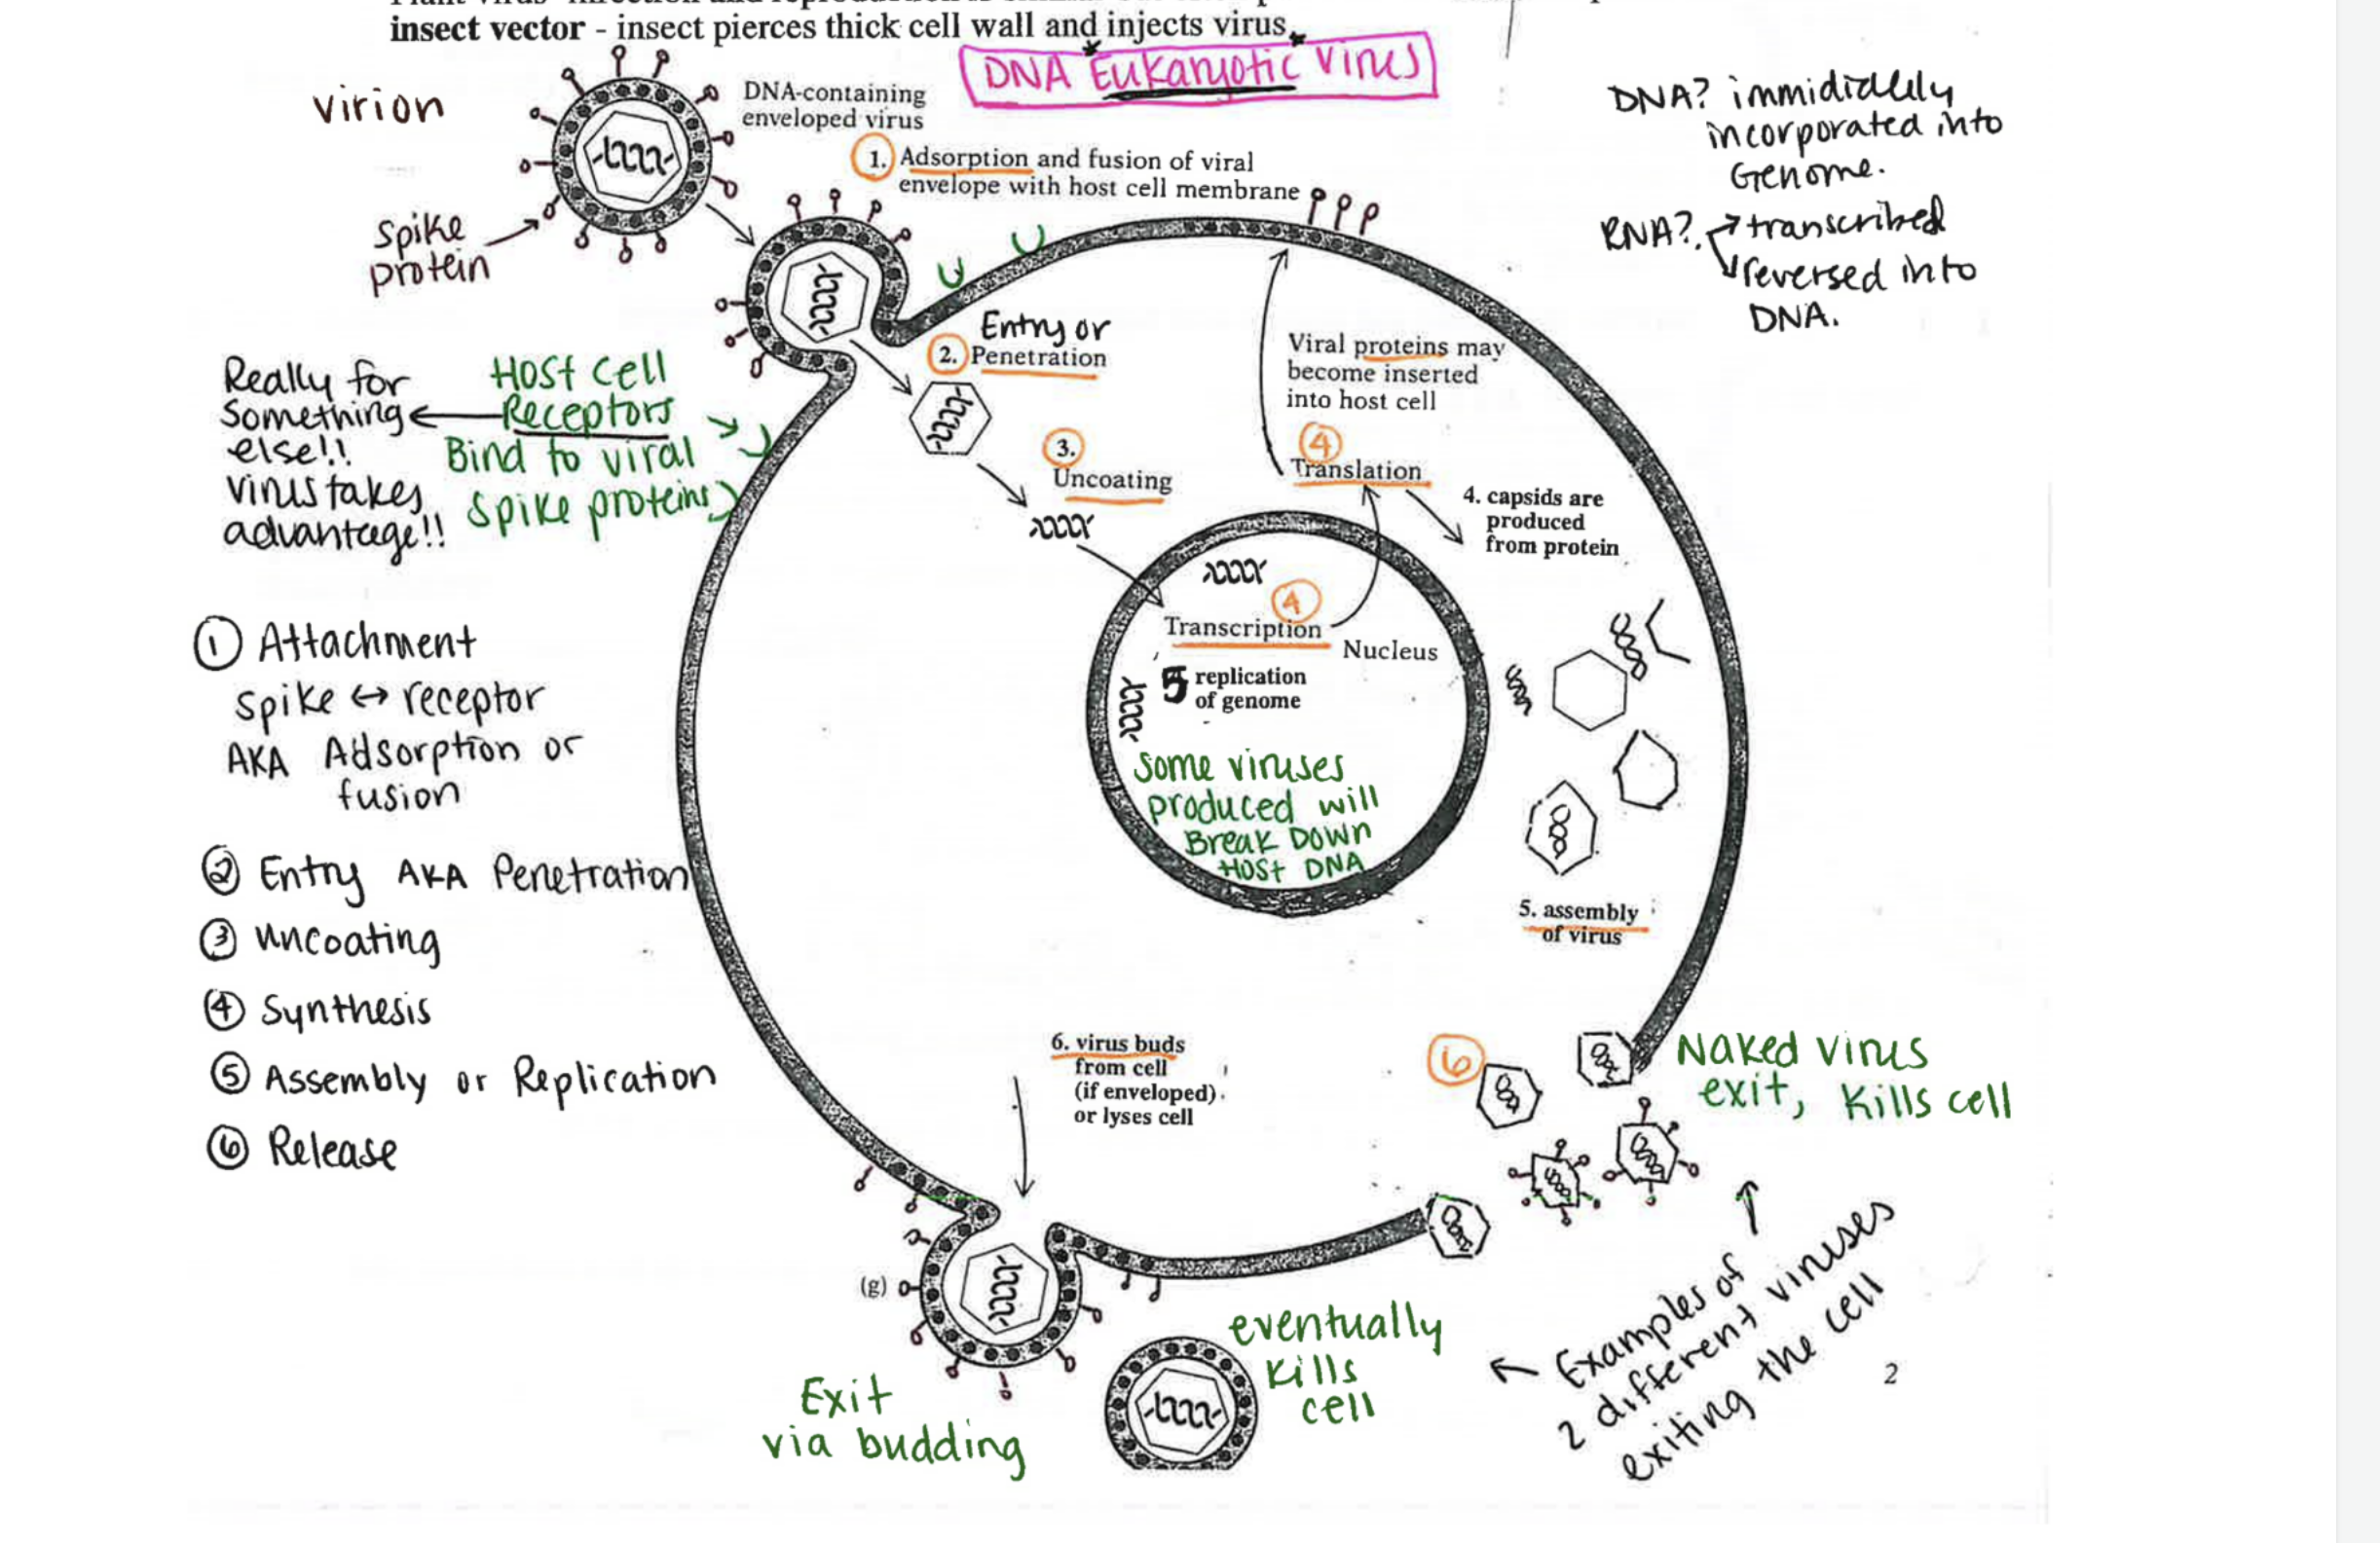 insect vector - insect pierces thick cell wall and injects virus.
DNA Eukaryotic Virus
virion
DNA-containing
enveloped virus
1. Adsorption and fusion of viral
envelope with host cell membrane
Spike
protein
DNA? immididlely
incorporated into
Genome.
RNA? → transcribed
reversed into
DNA.
Entry or
2. Penetration
Really for
something
else!!
virus takes
advantage!!
Host cell
Receptors
Bind to viral
spike proteins
3.
Uncoating
Viral proteins may
become inserted
into host cell
4
Translation
4. capsids are
produced
from protein
4
Transcription
Nucleus
5 replication
of genome
Some viruses
produced will
Break Down
Host DNA
① Attachment
Spike ↔ receptor
AKA Adsorption or
fusion
② Entry AKA Penetration
③ Uncoating
④ Synthesis
⑤ Assembly or Replication
⑥ Release
5. assembly
of virus
6. virus buds
from cell
(if enveloped)
or lyses cell
6
Naked Virus
exit, Kills cell
(g)
Exit
via budding
eventually
Kills
cell
Examples of
2 different viruses
exiting the cell
2